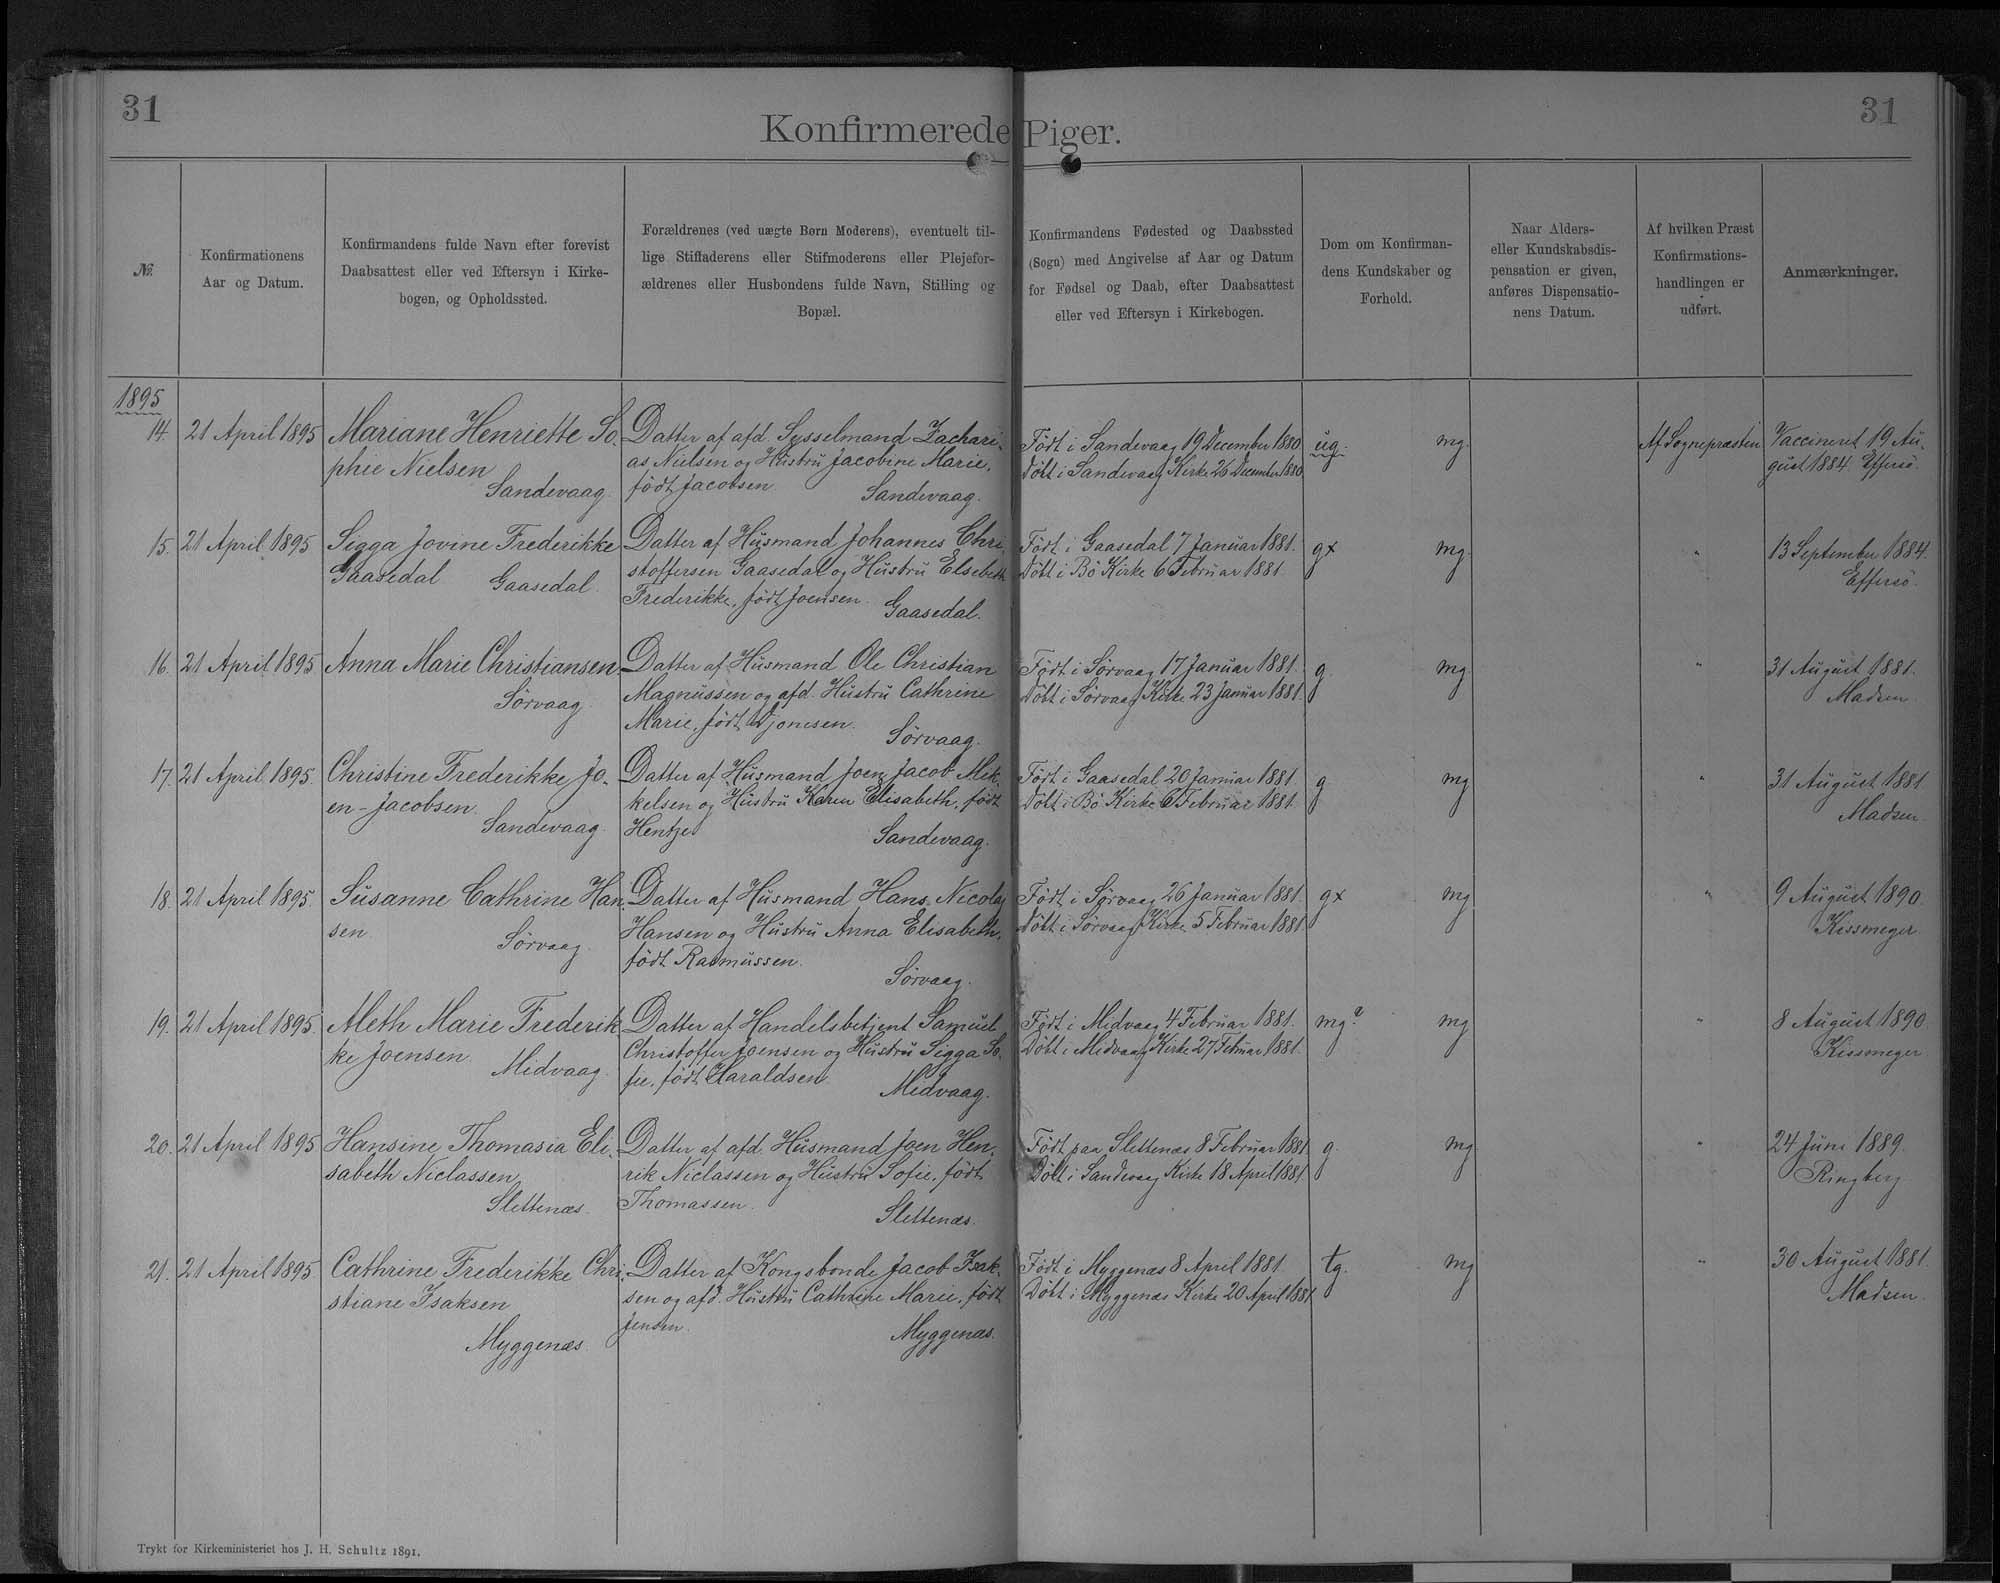 31
31
Konfirmerede Piger.
№.
Konfirmationens
Aar og Datum.
Konfirmandens fulde Navn efter forevist
Daabsattest eller ved Eftersyn i Kirke-
bogen, og Opholdssted.
Forældrenes (ved uægte Børn Moderens), eventuelt til-
lige Stiffaderens eller Stifmoderens eller Plejefor-
ældrenes eller Husbondens fulde Navn, Stilling og
Bopæl.
Konfirmandens Fødested og Daabssted
(Sogn) med Angivelse af Aar og Datum
for Fødsel og Daab, efter Daabsattest
eller ved Eftersyn i Kirkebogen.
Dom om Konfirman-
dens Kundskaber og
Forhold.
Naar Alders-
eller Kundskabsdis-
pensation er given,
anføres Dispensatio-
nens Datum.
Af hvilken Præst
Konfirmations-
handlingen er
udført.
Anmærkninger.
1895
14.
21 April 1895
Mariane Henriette So-
phie Nielsen
Sandevaag.
Datter af afd. Sysselmand Zachari-
as Nielsen og Hustru Jacobine Marie,
født Jacobsen.
Sandevaag.
Født i Sandevaag 19 December 1880.
Døbt i Sandevaag Kirke 26 December 1880.
ug.
mg.
Af Sognepræsten
Vaccineret 19 Au-
gust 1884. Effersö.
15.
21 April 1895
Sigga Jovine Frederikke
Gaasedal
Gaasedal.
Datter af Husmand Johannes Chri-
stoffersen Gaasedal og Hustru Elsebeth
Frederikke, født Joensen.
Gaasedal.
Født i Gaasedal 7 Januar 1881.
Døbt i Bö Kirke 6 Februar 1881.
gx
mg.
"
13 September 1884.
Effersö.
16.
21 April 1895
Anna Marie Christiansen.
Sörvaag.
Datter af Husmand Ole Christian
Magnussen og afd. Hustru Cathrine
Marie, født Djonesen.
Sörvaag.
Født i Sörvaag 17 Januar 1881.
Døbt i Sörvaag Kirke 23 Januar 1881.
g.
mg
"
31 August 1881.
Madsen
17.
21 April 1895
Christine Frederikke Jo-
en-Jacobsen.
Sandevaag.
Datter af Husmand Joen Jacob Mik-
kelsen og Hustru Karen Elisabeth, født
Hentze
Sandevaag.
Født i Gaasedal 20 Januar 1881.
Døbt i Bö Kirke 6 Februar 1881.
g
mg
"
31 August 1881
Madsen.
18.
21 April 1895.
Susanne Cathrine Han-
sen.
Sörvaag.
Datter af Husmand Hans Nicolaj
Hansen og Hustru Anna Elisabeth,
født Rasmussen.
Sörvaag.
Født i Sörvaag 26 Januar 1881.
Døbt i Sörvaag Kirke 5 Februar 1881.
gx
mg
"
9 August 1890.
Kissmeyer
19.
21 April 1895.
Aleth Marie Frederik-
ke Joensen.
Midvaag.
Datter af Handelsbetjent Samuel
Christoffer Joensen og Hustru Sigga So-
fie, født Haraldsen.
Midvaag.
Født i Midvaag 4 Februar 1881.
Døbt i Midvaag Kirke 27 Februar 1881.
mg?
mg
"
8 August 1890
Kissmeyer
20.
21 April 1895
Hansine Thomasia Eli-
sabeth Niclassen
Slettenæs.
Datter af afd. Husmand Joen Hen-
rik Niclassen og Hustru Sofie, født
Thomassen.
Slettenæs.
Født paa Slettenæs 8 Februar 1881
Døbt i Sandevaag Kirke 18 April 1881.
g.
mg
"
24 Juni 1889.
Ringberg
21.
21 April 1895
Cathrine Frederikke Chri-
stiane Isaksen
Myggenæs.
Datter af Kongsbonde Jacob Isak-
sen og afd. Hustru Cathrine Marie, født
Jensen.
Myggenæs.
Født i Myggenæs 8 April 1881.
Døbt i Myggenæs Kirke 20 April 1881
tg.
mg
"
30 August 1881.
Madsen.
Trykt for Kirkeministeriet hos J. H. Schultz 1891.